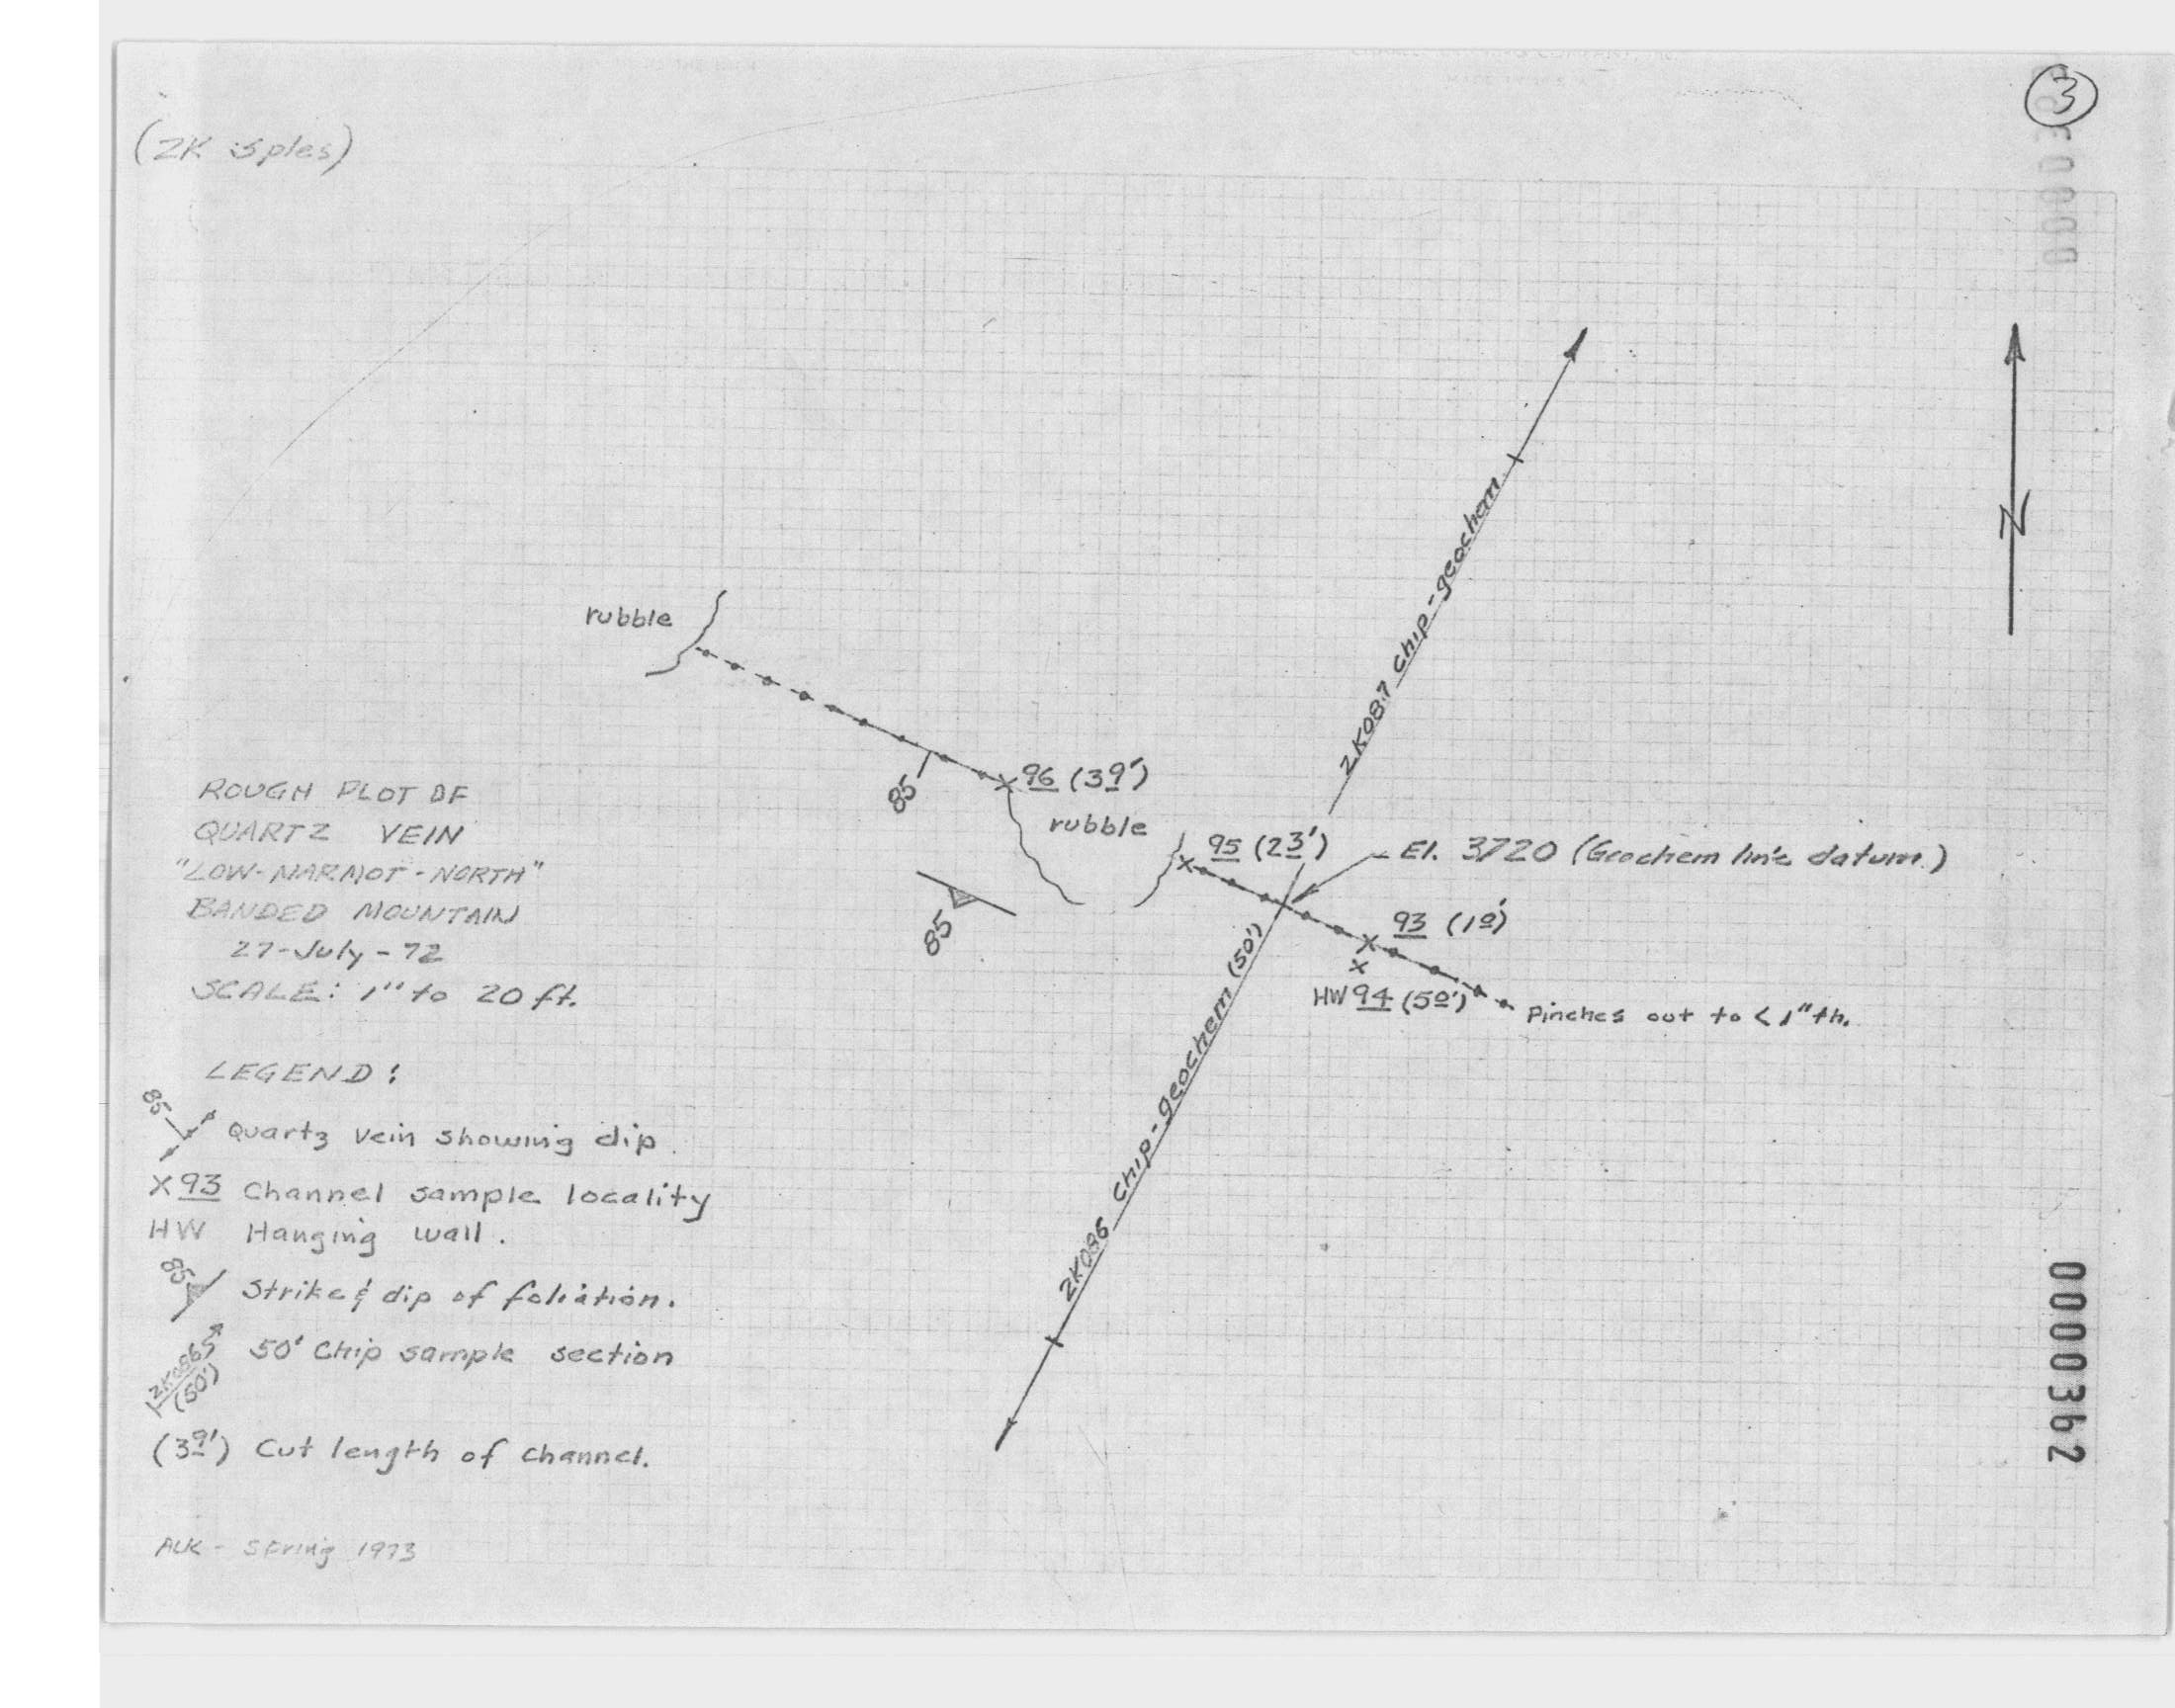 (2K sples)
3
rubble
85
96 (3 9')
rubble
85
95 (2 3')
El. 3720 (Geochem line datum)
93 (1 0')
HW 94 (5 0')
Pinches out to <1" th.
2K087 Chip-geochem
2K086 Chip-geochem (50')
N
ROUGH PLOT OF
QUARTZ VEIN
"LOW-MARMOT-NORTH"
BANDED MOUNTAIN
27-July-72
SCALE: 1" to 20 ft.
LEGEND:
85 Quartz vein showing dip.
X 93 Channel sample locality
HW Hanging wall.
85 Strike & dip of foliation.
2K086 (50') 50' Chip sample section
(3 9') Cut length of channel.
Spring 1973
0000362